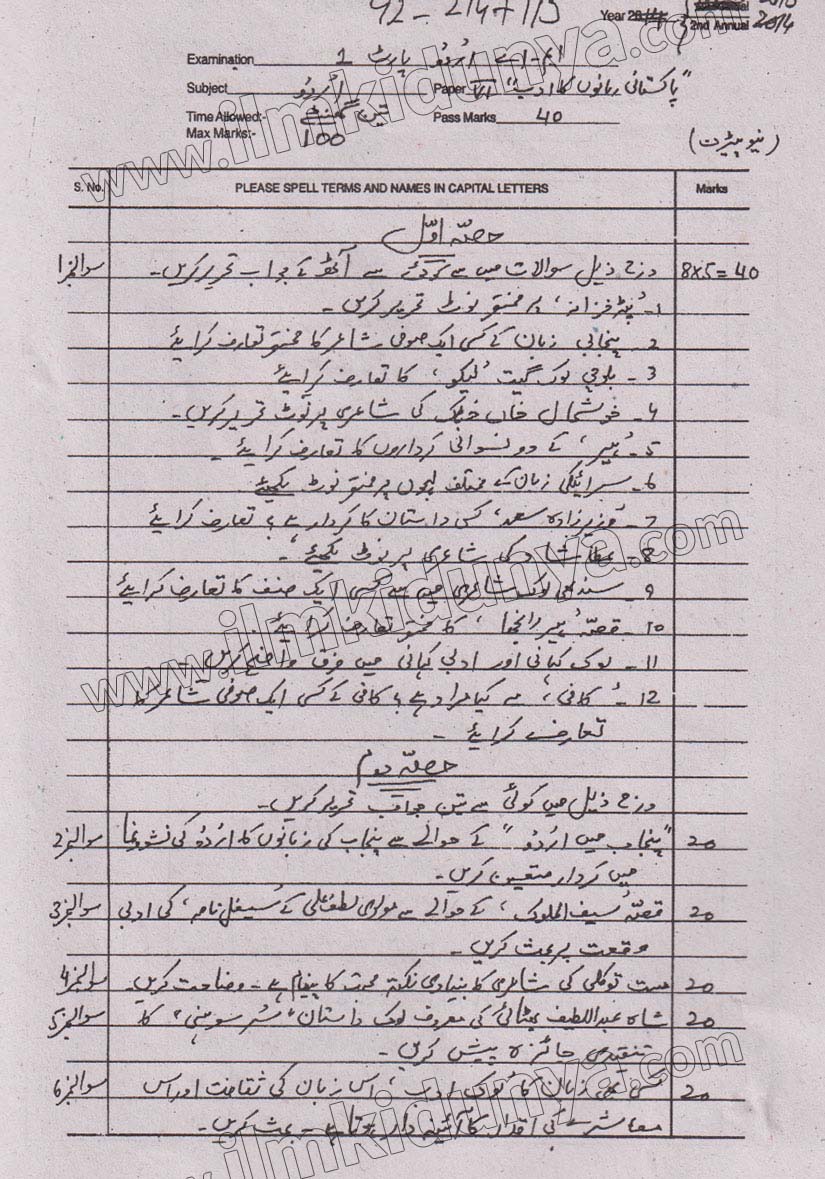 92-214+115
Year 2014 2nd Annual 2014
Examination ایم-اے اردو پارٹ 1
Subject اُردو Paper "پاکستانی زبانوں کا ادب"
Time Allowed:- تین گھنٹے Pass Marks 40
Max Marks:- 100
(نیو پیٹرن)
S. No. PLEASE SPELL TERMS AND NAMES IN CAPITAL LETTERS Marks
حصّہ اوّل
سوالنمبر1 درج ذیل سوالات میں سے کوئی سے آٹھ کے جواب تحریر کریں۔ 8x5=40
1۔ 'پٹہ خزانہ' پر مختصر نوٹ تحریر کریں۔
2۔ پنجابی زبان کے کسی ایک صوفی شاعر کا مختصر تعارف کرایئے
3۔ بلوچی لوک گیت 'لیکو' کا تعارف کرایئے
4۔ خوشحال خاں خٹک کی شاعری پر نوٹ تحریر کریں۔
5۔ 'ہیر' کے دو نسوانی کرداروں کا تعارف کرایئے۔
6۔ سرائیکی زبان کے مختلف لہجوں پر مختصر نوٹ لکھیئے
7۔ 'وزیرزادہ سعد' کس داستان کا کردار ہے؟ تعارف کرایئے
8۔ عطا شاد کی شاعری پر نوٹ لکھیئے۔
9۔ سندھی لوک شاعری میں سے کسی ایک صنف کا تعارف کرایئے
10۔ قصّہ 'ہیر رانجھا' کا مختصر تعارف کرایئے
11۔ لوک کہانی اور ادبی کہانی میں فرق واضح کریں۔
12۔ 'کافی' سے کیا مراد ہے؟ کافی کے کسی ایک صوفی شاعر کا
تعارف کرایئے۔
حصّہ دوم
درج ذیل میں کوئی سے تین جواب تحریر کریں۔
سوالنمبر2 "پنجاب میں اردو" کے حوالے سے پنجاب کی زبانوں کا اردو کی نشوونما 20
میں کردار متعین کریں۔
سوالنمبر3 قصّہ 'سیف الملوک' کے حوالے سے مولوی لطف علی کے 'سیفل نامہ' کی ادبی 20
وقعت پر بحث کریں۔
سوالنمبر4 مست توکلی کی شاعری کا بنیادی نکتہ محبت کا پیغام ہے۔ وضاحت کریں۔ 20
سوالنمبر5 شاہ عبداللطیف بھٹائی کی معروف لوک داستان 'سُر سوہنی' کا 20
تنقیدی جائزہ پیش کریں۔
سوالنمبر6 کسی بھی زبان کا 'لوک ادب' اس زبان کی ثقافت اور اس 20
معاشرے کی اقدار کا آئینہ دار ہوتا ہے۔ بحث کریں۔
www.ilmkidunya.com
www.ilmkidunya.com
www.ilmkidunya.com